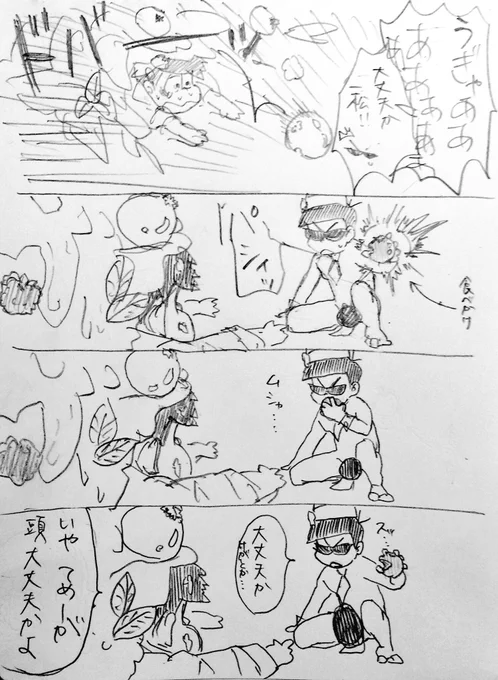 うぎゃああ
あああああ
あ
大丈夫か
一松!!
ドドド
食べかけ
ムシャ…
スッ…
大丈夫か
いや てめーが
頭大丈夫かよ